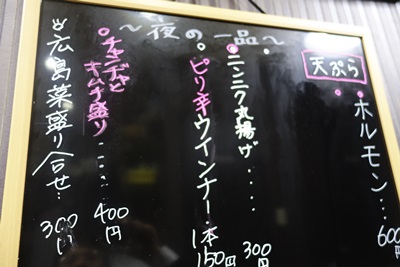 ～夜の一品～
天ぷら
ホルモン…
600
ニンニク丸揚げ・・・・
300円
ピリ辛ウインナー・1本
150円
チャンヂャとキムチ盛り・・・・・
400円
広島菜盛り合せ…
300円